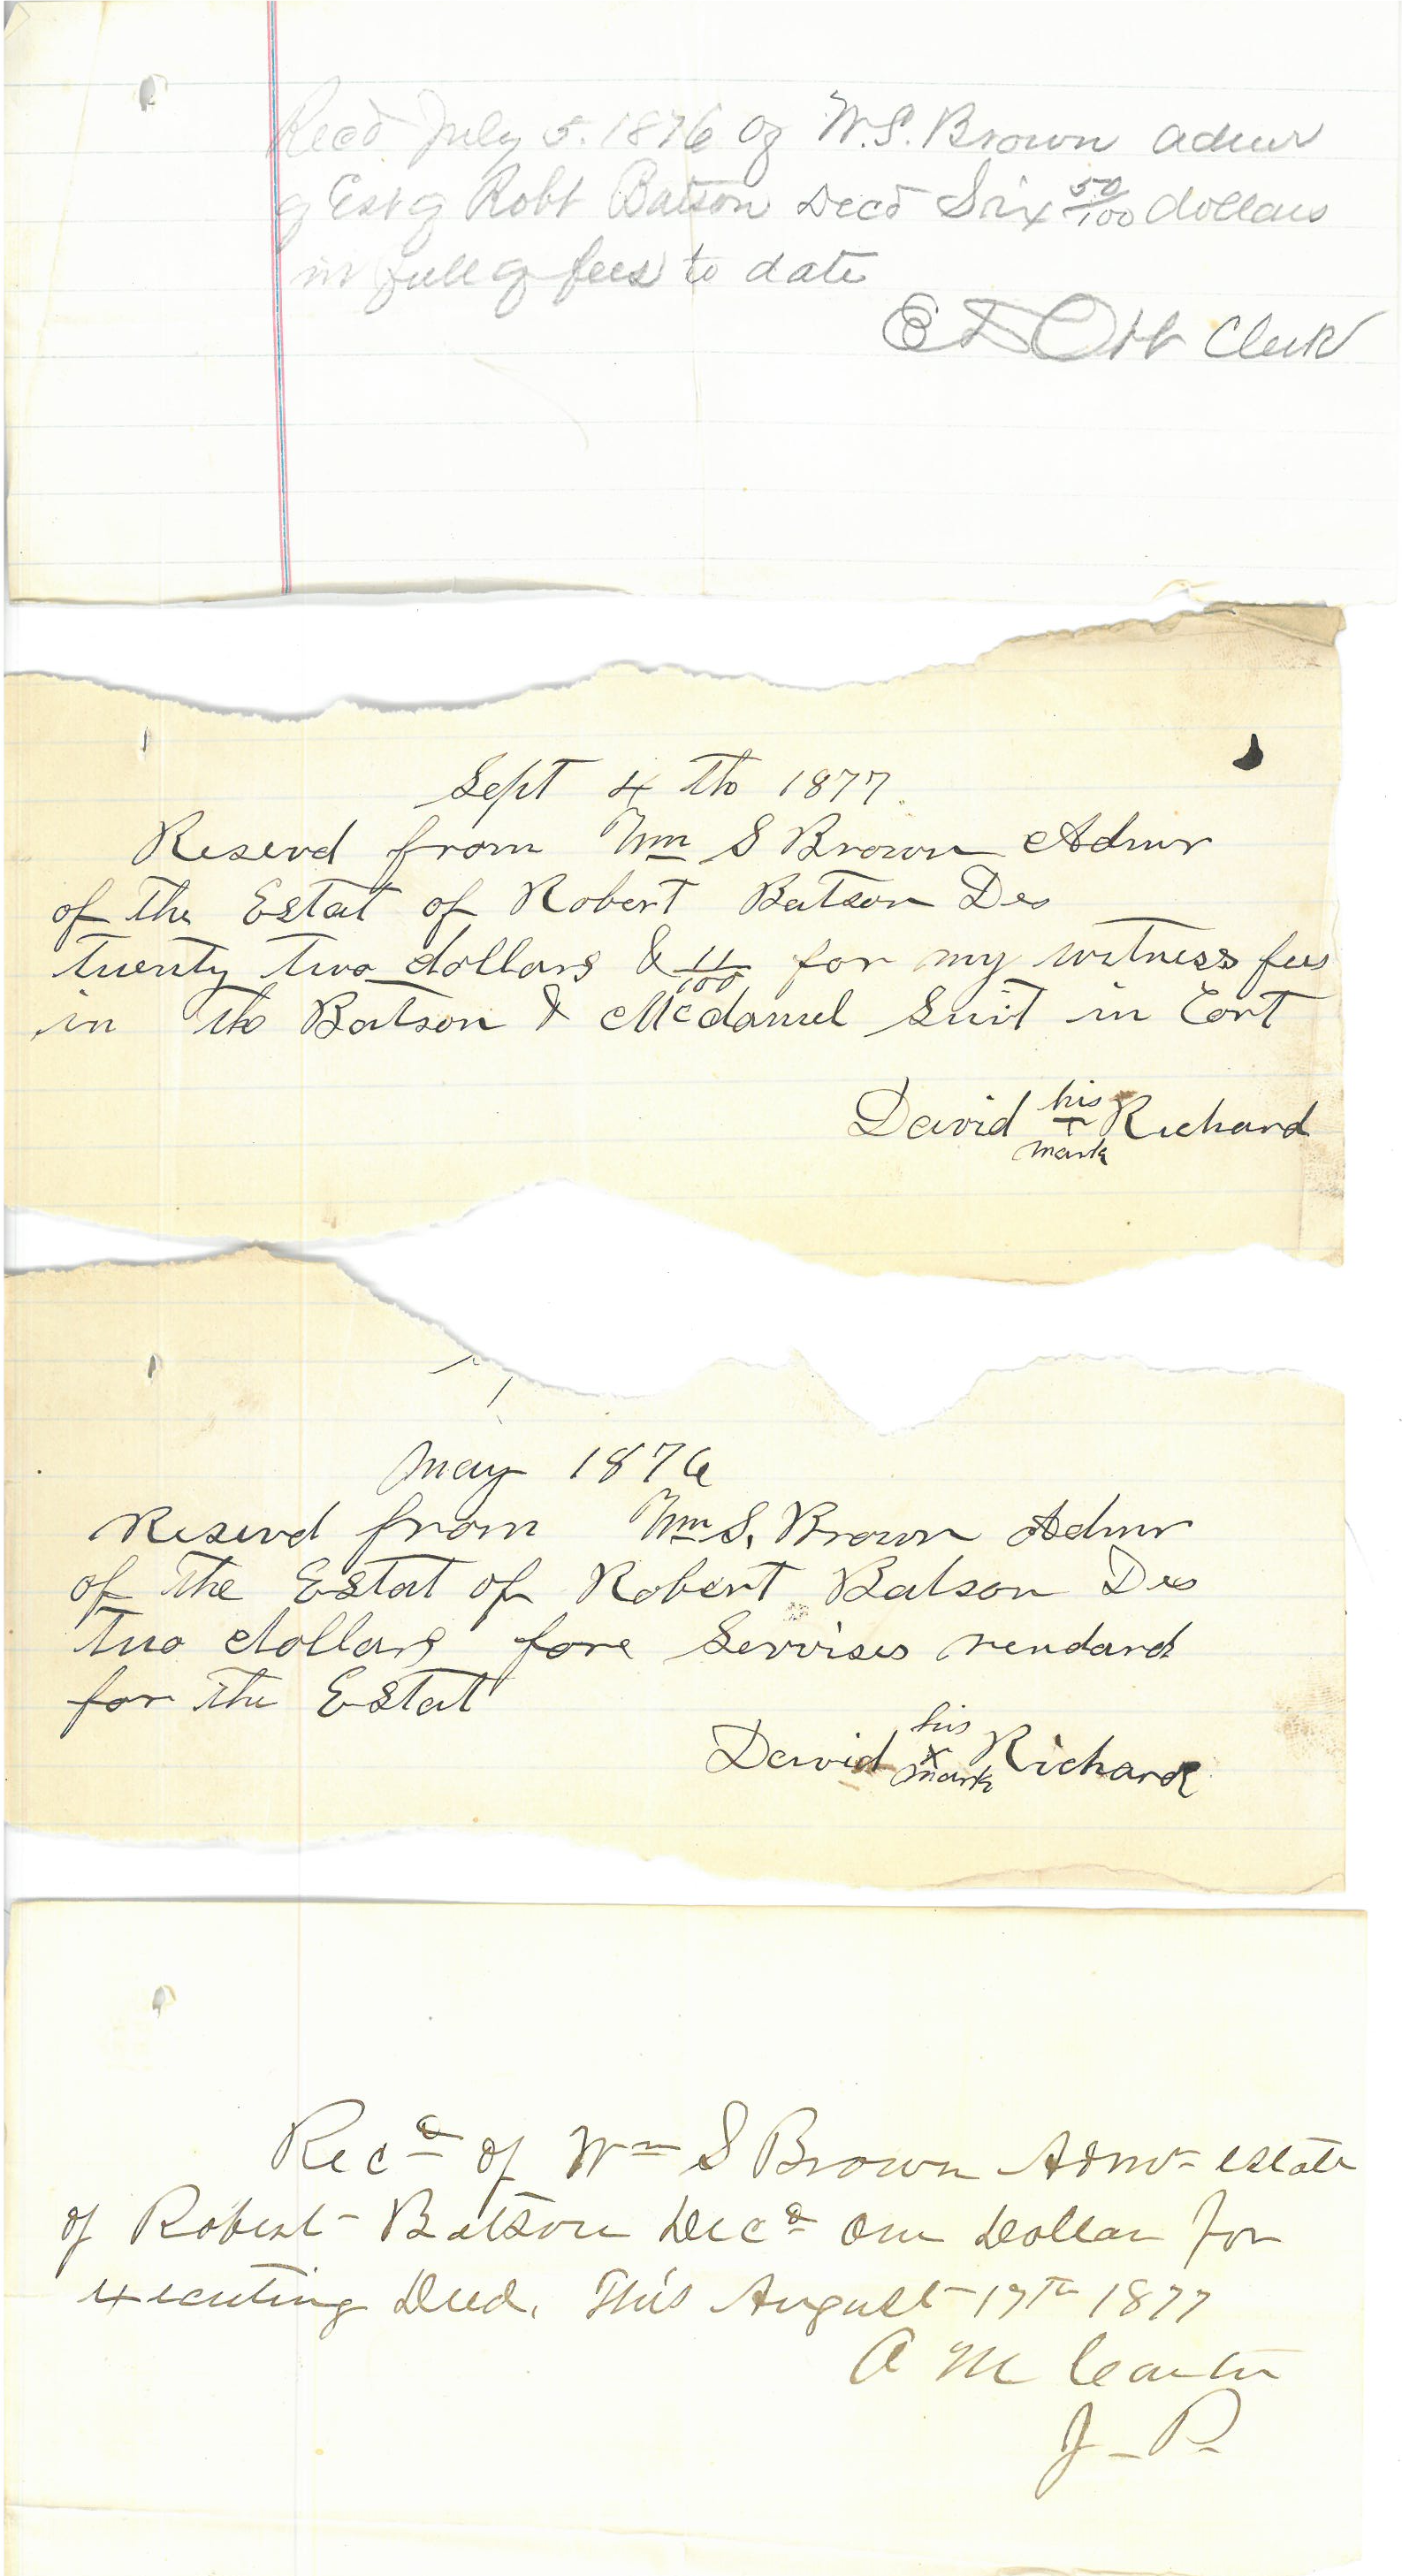 Recd July 5. 1876 of W.S. Brown admr
of Est of Robt Batson Decd Six 50/100 dollars
in full of fees to date
E D Ott Clerk
Sept 4 th 1877
Reserd from Wm S Brown Admr
of the Estat of Robert Batson Des
twenty two dollars & 11/100 for my witness fees
in the Batson & Mcdaniel Suit in Cort
David his T mark Richard
May 1876
Reserd from Wm S. Brown Admr
of the Estat of Robert Batson Des
two dollars fore Servises rendard
for the Estat
David his x mark Richard
Recd of Wm S Brown Admr estate
of Robert Batson Decd One Dollar for
executing Deed. This August 17th 1877
A M Carter
J P